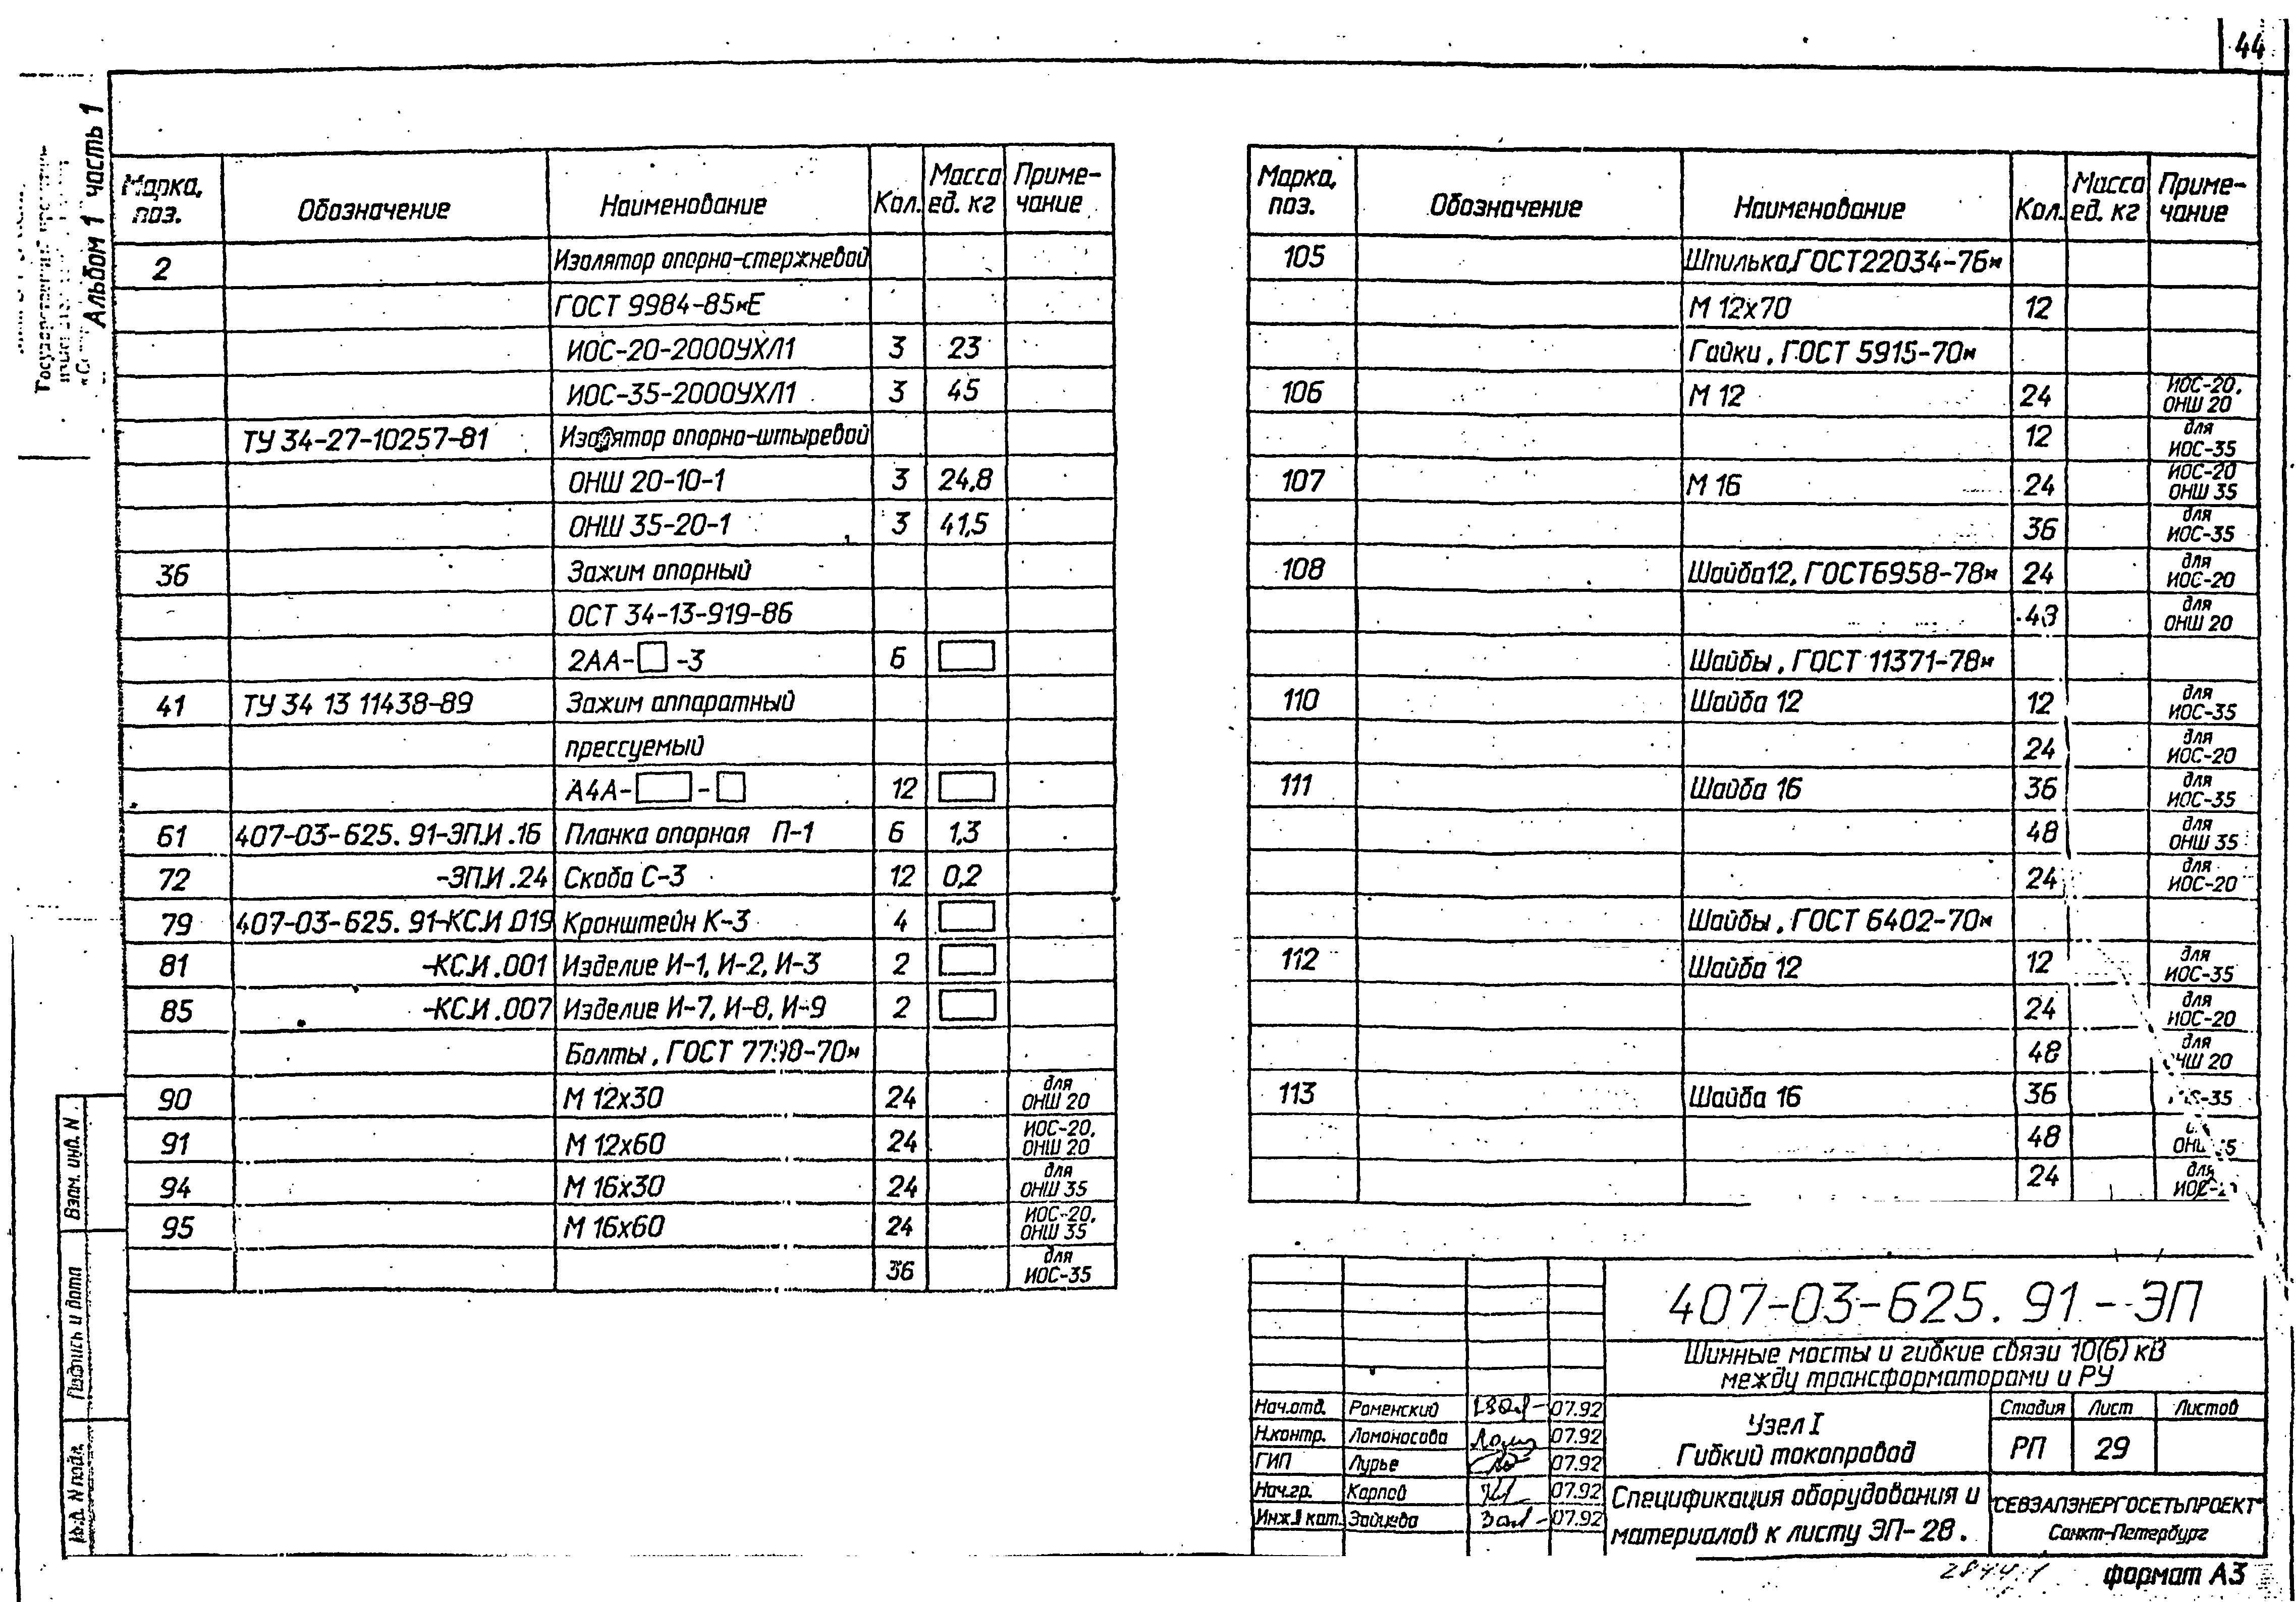 44
Альбом 1 часть 1
Марка, поз. Обозначение Наименование Кол. Масса ед. кг Примечание
2 Изолятор опорно-стержневой
ГОСТ 9984-85*Е
ИОС-20-2000УХЛ1 3 23
ИОС-35-2000УХЛ1 3 45
ТУ 34-27-10257-81 Изолятор опорно-штыревой
ОНШ 20-10-1 3 24,8
ОНШ 35-20-1 3 41,5
36 Зажим опорный
ОСТ 34-13-919-86
2АА-□-3 6
41 ТУ 34 13 11438-89 Зажим аппаратный
прессуемый
А4А-□-□ 12
61 407-03-625.91-ЭП.И.16 Планка опорная П-1 6 1,3
72 -ЭП.И.24 Скоба С-3 12 0,2
79 407-03-625.91-КС.И.019 Кронштейн К-3 4
81 -КС.И.001 Изделие И-1, И-2, И-3 2
85 -КС.И.007 Изделие И-7, И-8, И-9 2
Болты, ГОСТ 7798-70*
90 М 12х30 24 для ОНШ 20
91 М 12х60 24 ИОС-20, ОНШ 20
94 М 16х30 24 для ОНШ 35
95 М 16х60 24 ИОС-20, ОНШ 35
36 для ИОС-35
Марка, поз. Обозначение Наименование Кол. Масса ед. кг Примечание
105 Шпилька, ГОСТ 22034-76*
М 12х70 12
Гайки, ГОСТ 5915-70*
106 М 12 24 ИОС-20, ОНШ 20
12 для ИОС-35
107 М 16 24 ИОС-20 ОНШ 35
36 для ИОС-35
108 Шайба 12, ГОСТ 6958-78* 24 для ИОС-20
48 для ОНШ 20
Шайбы, ГОСТ 11371-78*
110 Шайба 12 12 для ИОС-35
24 для ИОС-20
111 Шайба 16 36 для ИОС-35
48 для ОНШ 35
24 для ИОС-20
Шайбы, ГОСТ 6402-70*
112 Шайба 12 12 для ИОС-35
24 для ИОС-20
48 для ОНШ 20
113 Шайба 16 36 ИОС-35
48
24 для
Взам. инв. N
Подпись и дата
Инв. N подл.
407-03-625.91-ЭП
Шинные мосты и гибкие связи 10(6) кВ
между трансформаторами и РУ
Нач.отд. Роменский 07.92
Н.контр. Ломоносова 07.92
ГИП Лурье 07.92
Нач.гр. Карпов 07.92
Инж.I кат. Зайцева 07.92
Узел I
Гибкий токопровод
Стадия Лист Листов
РП 29
Спецификация оборудования и
материалов к листу ЭП-28.
"СЕВЗАПЭНЕРГОСЕТЬПРОЕКТ"
Санкт-Петербург
формат А3